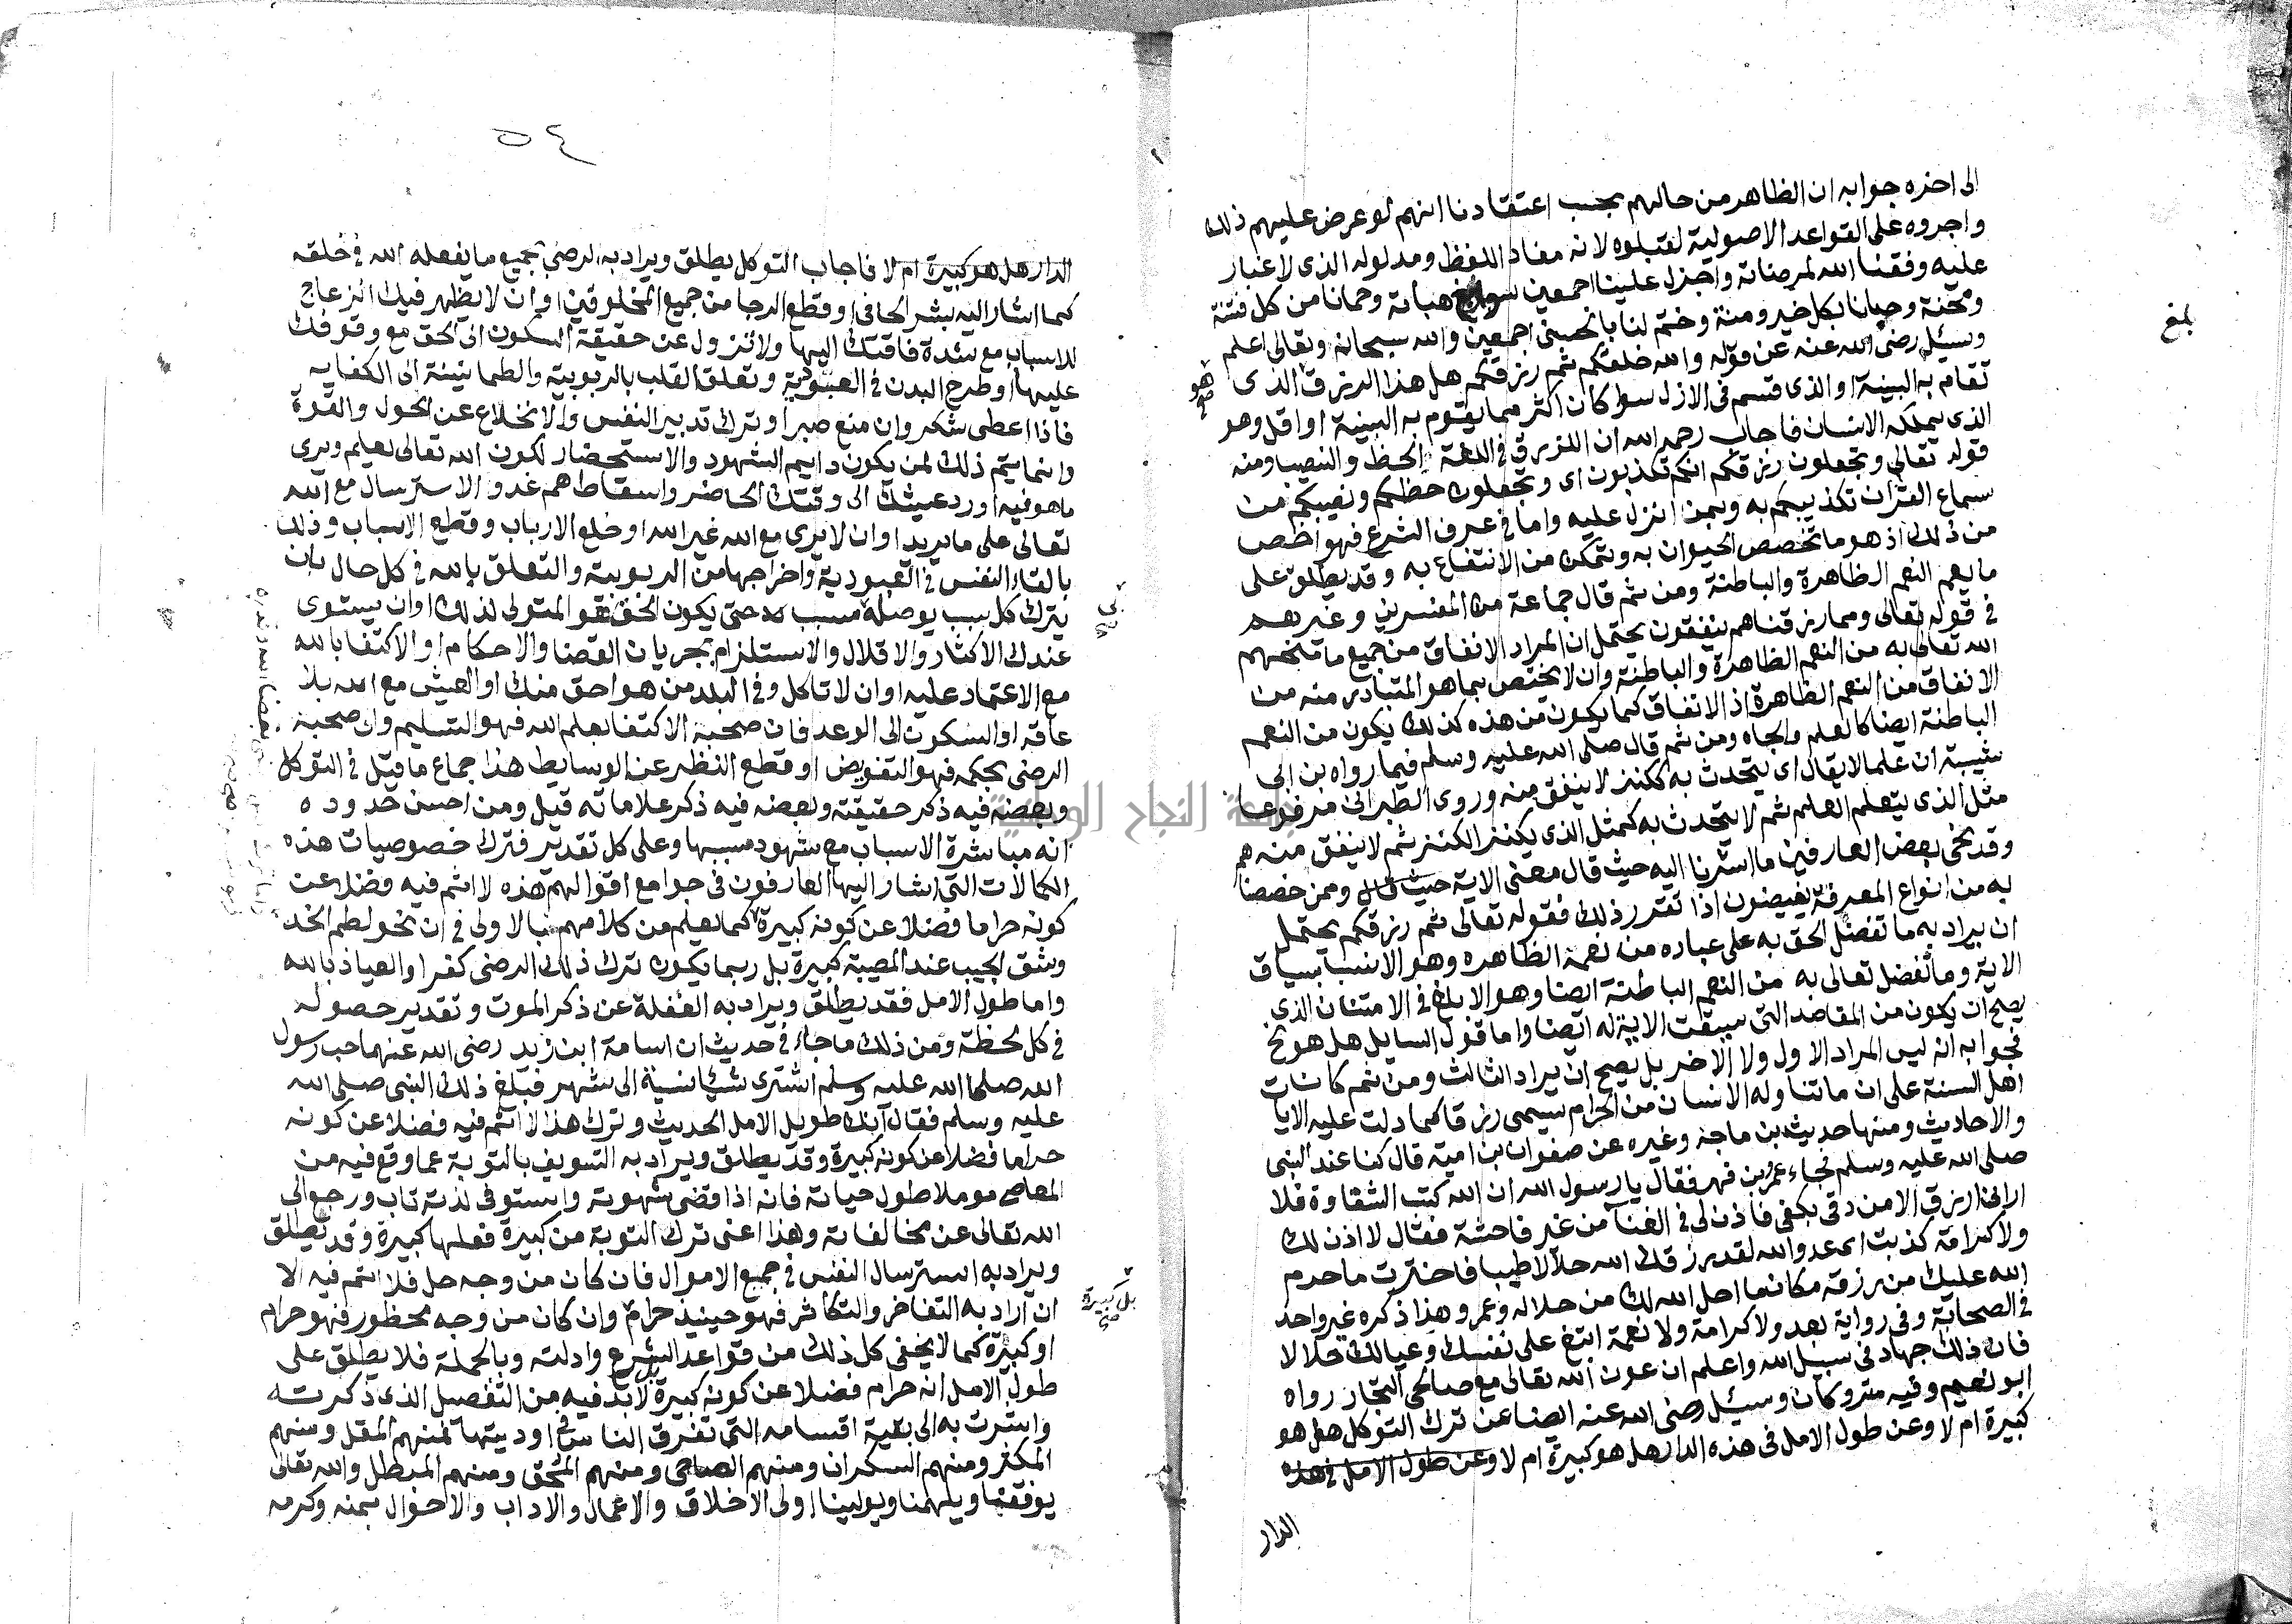 الى اخره جوابه ان الظاهر من حالهم بحسب اعتقادنا انهم لو عرض عليهم ذلك
واجروه على القواعد الاصولية لقبلوه لانه مفاد اللفظ ومدلوله الذى لا غبار
عليه وفقنا الله لمرضاته واجزل علينا اجمعين سوابغ هباته وحمانا من كل فتنة
ومحنة وحبانا بكل خير ومنة وختم لنا بالحسنى اجمعين والله سبحانه وتعالى اعلم
وسئل رضى الله عنه عن قوله والله خلقكم ثم رزقكم هل هذا الرزق الذى
تقام به البينة او الذى قسم فى الازل سوا كان اكثر مما يقوم به البينة او اقل وهو
الذى يملكه الانسان فاجاب رحمه الله ان الرزق فى اللغة الحظ والنصيب ومنه
قوله تعالى وتجعلون رزقكم انكم تكذبون اى وتجعلون حظكم ونصيبكم من
سماع القرآن تكذيبكم به وبمن انزل عليه واما فى عرف الشرع فهو اخص
من ذلك اذ هو ما تخصص الحيوان به وتمكن من الانتفاع به وقد يطلق على
ما يعم النعم الظاهرة والباطنة ومن ثم قال جماعة من المفسرين وغيرهم
فى قوله تعالى ومما رزقناهم ينفقون يحتمل ان المراد الانفاق من جميع ما منحهم
الله تعالى به من النعم الظاهرة والباطنة وان لا يختص بما هو المتبادر منه من
الانفاق من النعم الظاهرة اذ الانفاق كما يكون من هذه كذلك يكون من النعم
الباطنة ايضا كالعلم والجاه ومن ثم قال صلى الله عليه وسلم فيما رواه بن ابى
شيبة ان علما لا يقال اى يتحدث به ككنز لا ينفق منه وروى الطبرانى مرفوعا
مثل الذى يتعلم العلم ثم لا يتحدث به كمثل الذى يكنز الكنز ثم لا ينفق منه
وقد نحى بعض العارفين ما اشرنا اليه حيث قال معنى الاية حيث قال ومن خصصناهم
به من انواع المعرفة يفيضون اذا تقرر ذلك فقوله تعالى ثم رزقكم يحتمل
ان يراد به ما تفضل الحق به على عباده من نعمة الظاهره وهو الانسب بسياق
الاية وما تفضل تعالى به من النعم الباطنة ايضا وهو الابلغ فى الامتنان الذى
يصح ان يكون من المقاصد التى سيقت الاية له ايضا واما قول السايل هل هو الخ
فجوابه انه ليس المراد الاول ولا الاخر بل يصح ان يراد الثالث ومن ثم كانت
اهل السنة على ان ما تناوله الانسان من الحرام يسمى رزقا كما دلت عليه الايات
والاحاديث ومنها حديث بن ماجه وغيره عن صفوان بن امية قال كنا عند النبى
صلى الله عليه وسلم فجاء عمر بن فهر فقال يا رسول الله ان الله كتب الشقاوة فلا
ارانى ارزق الا من دقى بكفى فاذن لى فى الغنا من غير فاحشة فقال لا اذن لك
ولا كرامة كذبت اى عدو الله لقد رزقك الله حلالا طيبا فاخترت ما حرم
الله عليك من رزقه مكان ما احل الله لك من حلاله وعمر وهذا ذكره غير واحد
فى الصحابة وفى رواية بعد ولا كرامة ولا نعمة ابتغ على نفسك وعيالك حلالا
فان ذلك جهاد فى سبيل الله واعلم ان عون الله تعالى مع صالحى التجار رواه
ابو نعيم وفيه متروكان وسئل رضى الله عنه ايضا عن ترك التوكل هل هو
كبيرة ام لا وعن طول الامل فى هذه الدار هل هو كبيرة ام لا وعن طول الامل فى هذه
الدار
بلغ
هو
صح
٥٤
الدار هل هو كبيرة ام لا فاجاب التوكل يطلق ويراد به الرضى بجميع ما يفعله الله فى خلقه
كما اشار اليه بشر الحافى او قطع الرجا من جميع المخلوقين او ان لا يظهر فيك انزعاج
للاسباب مع شدة فاقتك اليها ولا تزول عن حقيقة السكون الى الحق مع وقوفك
عليها او طرح البدن فى العبودية وتعلق القلب بالربوبية والطمانينة الى الكفاية
فاذا اعطى شكر وان منع صبر او ترك تدبير النفس والانخلاع عن الحول والقوة
وانما يتم ذلك لمن يكون دايم الشهود والاستحضار لكون الله تعالى يعلم ويرى
ما هو فيه او رد عيشك الى وقتك الحاضر واسقاط هم غد والاسترسال مع الله
تعالى على ما يريد او ان لا يرى مع الله غير الله او خلع الارباب وقطع الاسباب وذلك
بالقاء النفس فى العبودية واخراجها من الربوبية والتعلق بالله فى كل حال بان
يترك كل سبب يوصله سبب حتى يكون الحق هو المتولى لذلك او ان يستوى
عندك الاكثار والاقلال والاستلزام بجريان القضا والاحكام او الاكتفا بالله
مع الاعتماد عليه او ان لا تاكل وفى البلد من هو احق منك او العيش مع الله بلا
عاقه او السكون الى الوعد فان صحبة الاكتفا بعلم الله فهو التسليم وان صحبة
الرضى بحكمه فهو التفويض او قطع النظر عن الوسايط هذا جماع ما قيل فى التوكل
وبعضه فيه ذكر حقيقته وبعضه فيه ذكر علاماته قيل ومن احسن حدوده
انه مباشرة الاسباب مع شهود مسببها وعلى كل تقدير فترك خصوصيات هذه
الكمالات التى اشار اليها العارفون فى جوامع اقوالهم هذه لا اثم فيه فضلا عن
كونه حراما فضلا عن كونه كبيرة كما يعلم من كلامهم بالاولى فى ان نحو لطم الخد
وشق الجيب عند المصيبة كبيرة بل ربما يكون ترك ذلك الرضى كفرا والعياذ بالله
واما طول الامل فقد يطلق ويراد به الغفلة عن ذكر الموت وتقدير حصوله
فى كل لحظة ومن ذلك ما جاء فى حديث ان اسامة ابن زيد رضى الله عنهما حب رسول
الله صلى الله عليه وسلم اشترى شيئا نسية الى شهر فبلغ ذلك النبى صلى الله
عليه وسلم فقال انك طويل الامل الحديث وترك هذا لا اثم فيه فضلا عن كونه
حراما فضلا عن كونه كبيرة وقد يطلق ويراد به التسويف بالتوبة عما وقع فيه من
المعاصى موملا طول حياته فانه اذا قضى شهوته واستوفى لذته تاب ورجع الى
الله تعالى عن مخالفاته وهذا اعنى ترك التوبة من كبيرة فعلها كبيرة وقد يطلق
ويراد به استرسال النفس فى جميع الاموال فان كان من وجه حل فلا اثم فيه الا
ان اراد به التفاخر والتكاثر فهو حينيذ حرام وان كان من وجه محظور فهو حرام
او كبيرة كما لا يخفى كل ذلك من قواعد الشرع وادلته وبالجملة فلا يطلق على
طول الامل انه حرام فضلا عن كونه كبيرة بل لا بد فيه من التفصيل الذى ذكرته
واشرت به الى بقية اقسامه التى تفرق الناس فى اوديتها فمنهم المقل ومنهم
المكثر ومنهم السكران ومنهم الصاحى ومنهم المحق ومنهم المبطل والله تعالى
يوفقنا ويلهمنا ويولينا اولى الاخلاق والاعمال والاداب والاحوال بمنه وكرمه
بل كبيرة
صح
جامعة النجاح الوطنية